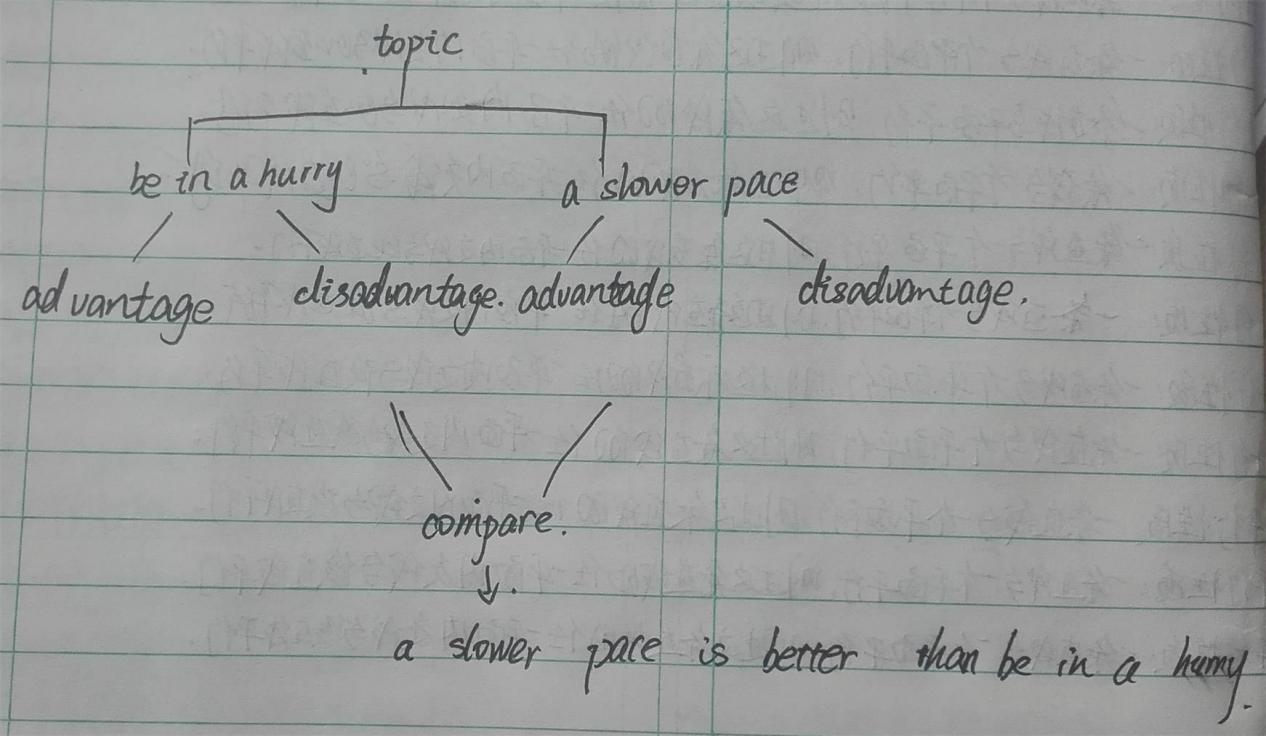 topic
be in a hurry a slower pace
advantage disadvantage. advantage disadvantage.
compare.
a slower pace is better than be in a hurry.